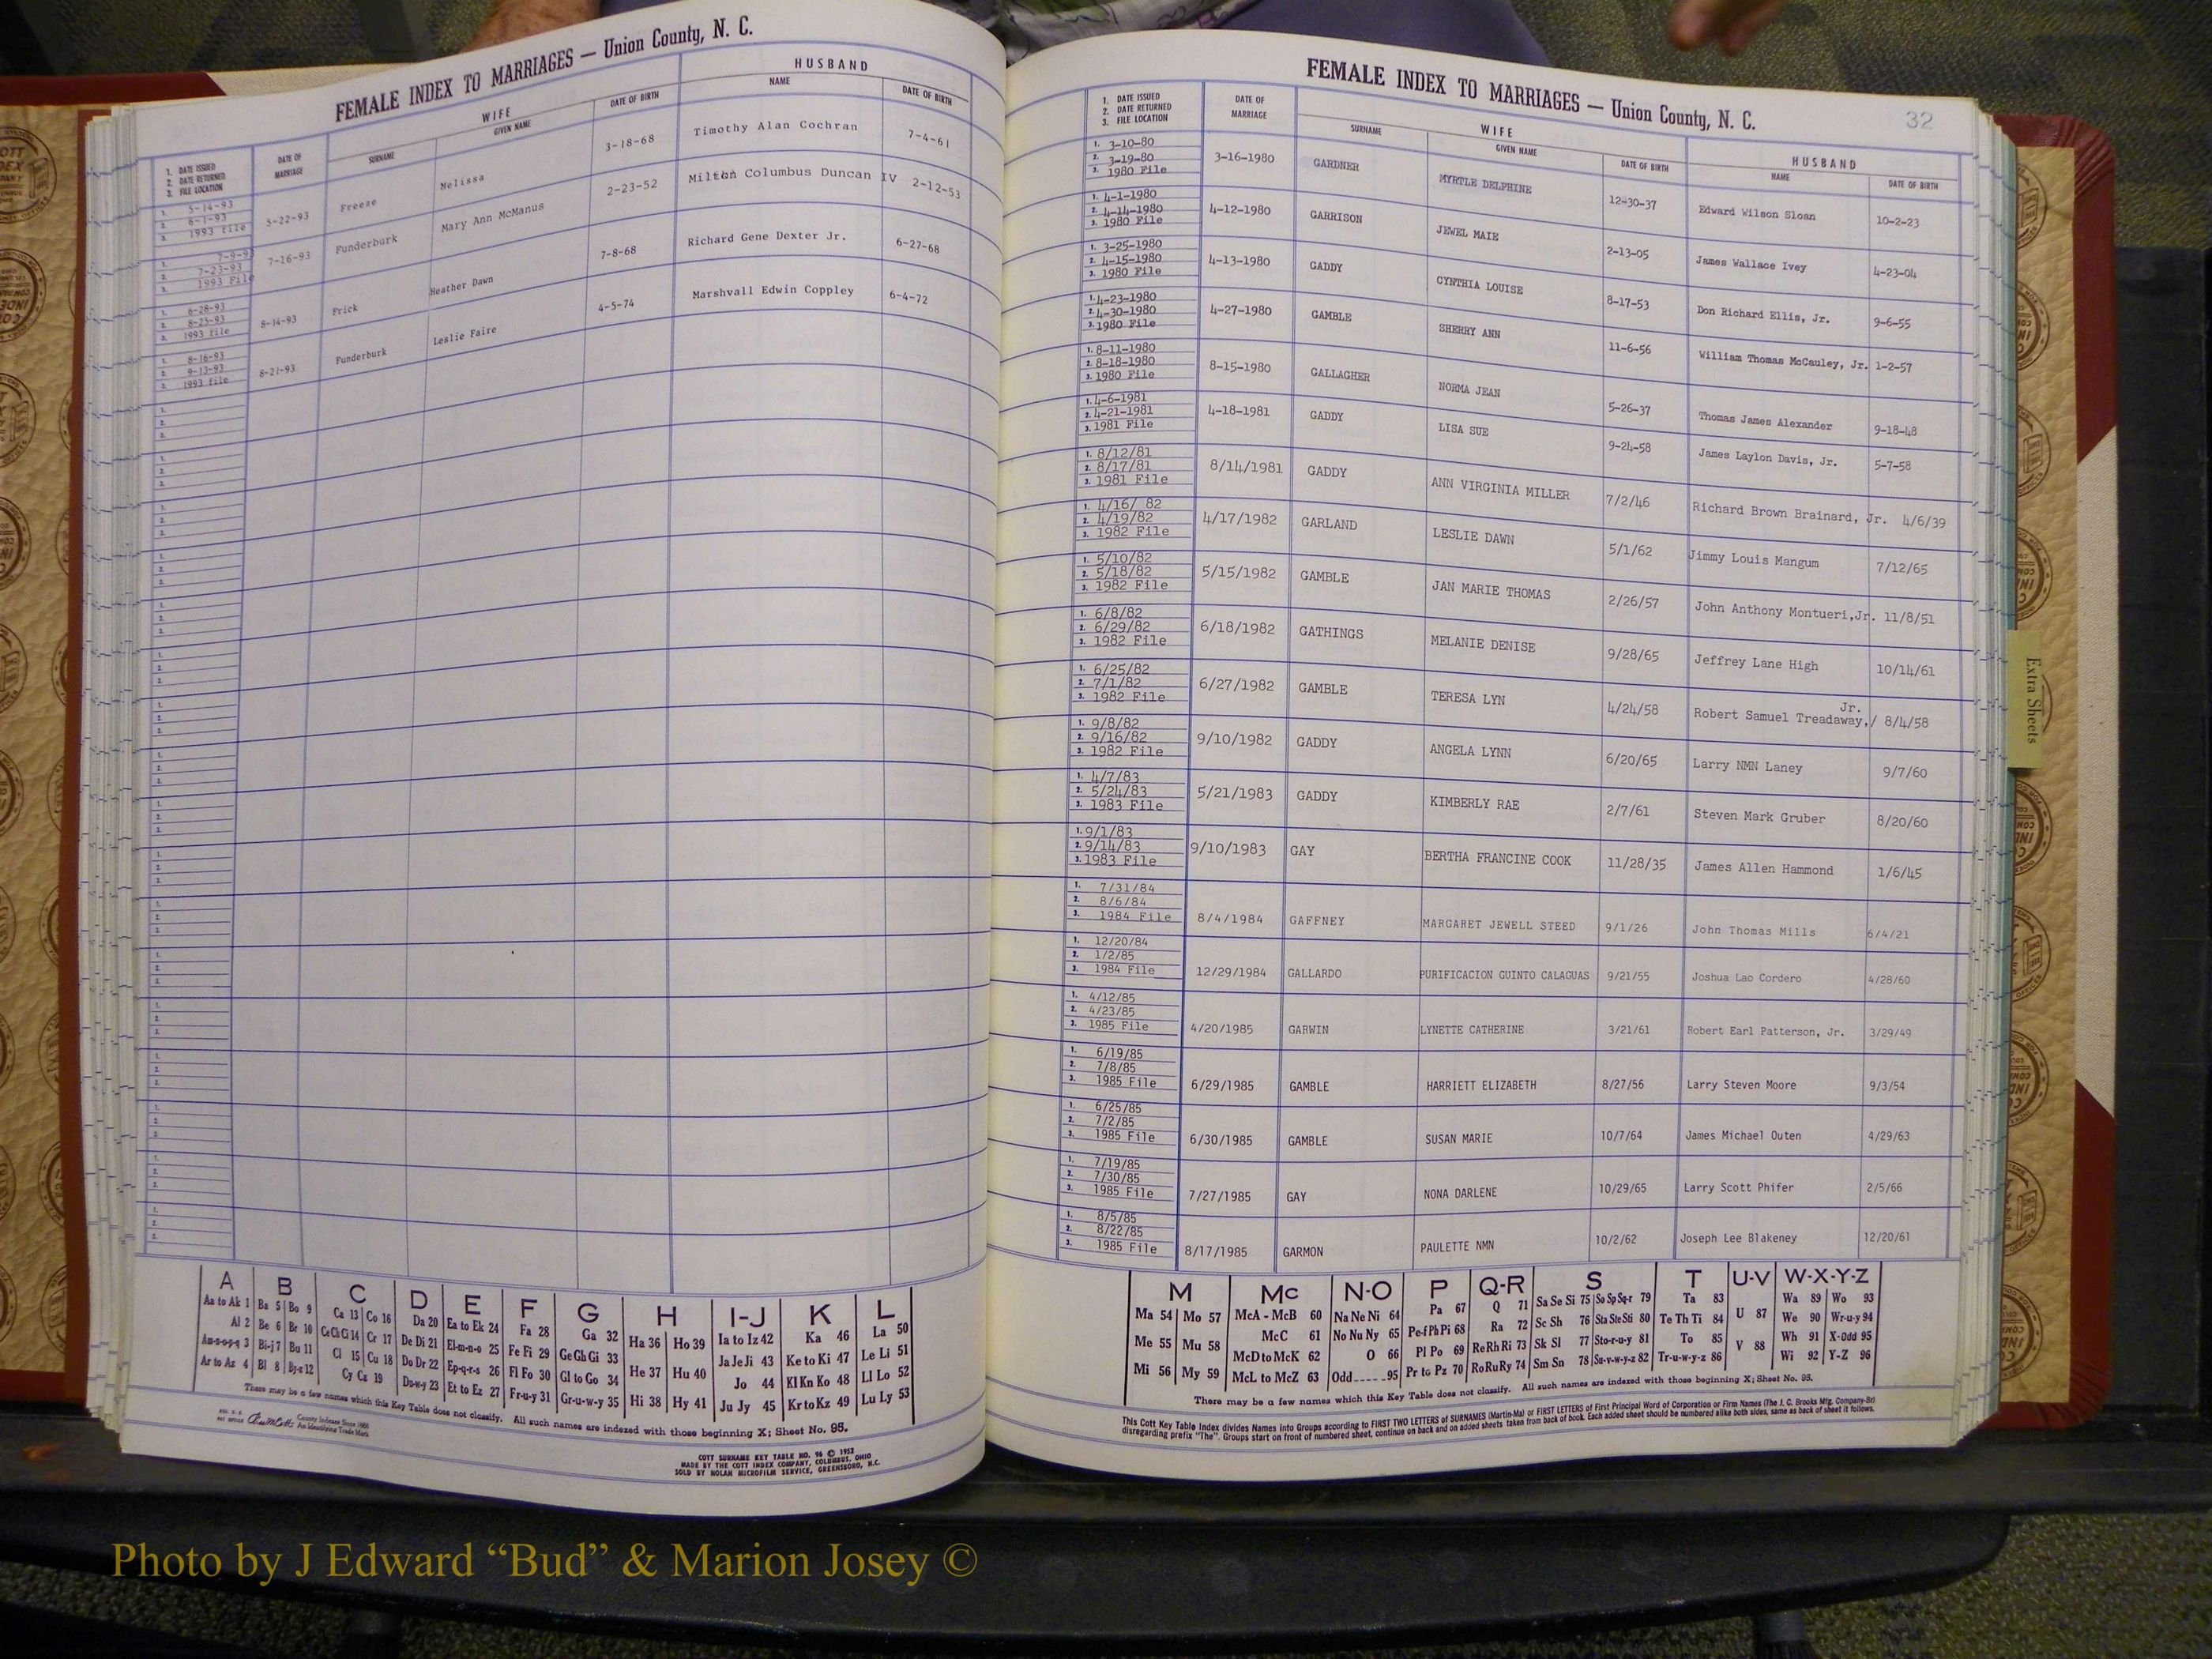 FEMALE INDEX TO MARRIAGES — Union County, N. C.
WIFE HUSBAND
1. DATE ISSUED 2. DATE RETURNED 3. FILE LOCATION DATE OF MARRIAGE SURNAME GIVEN NAME DATE OF BIRTH NAME DATE OF BIRTH
1. 5-14-93
2. 6-1-93 5-22-93 Freeze Melissa 3-18-68 Timothy Alan Cochran 7-4-61
3. 1993 file
1. 7-9-93
2. 7-23-93 7-16-93 Funderburk Mary Ann McManus 2-23-52 Milton Columbus Duncan IV 2-12-53
3. 1993 File
1. 6-28-93
2. 8-25-93 8-14-93 Frick Heather Dawn 7-8-68 Richard Gene Dexter Jr. 6-27-68
3. 1993 file
1. 8-16-93
2. 9-13-93 8-21-93 Funderburk Leslie Faire 4-5-74 Marshvall Edwin Coppley 6-4-72
3. 1993 file
A B C D E F G H I-J K L
Aa to Ak 1 Ba 5 Bo 9 Ca 13 Co 16 Da 20 Ea to Ek 24 Fa 28 Ga 32 Ha 36 Ho 39 Ia to Iz 42 Ka 46 La 50
Al 2 Be 6 Br 10 Ce Ch Ci 14 Cr 17 De Di 21 El-m-n-o 25 Fe Fi 29 Ge Gh Gi 33 Ja Je Ji 43 Ke to Ki 47 Le Li 51
Am-n-o-p-q 3 Bi-j 7 Bu 11 Cl 15 Cu 18 Do Dr 22 Ep-q-r-s 26 Fl Fo 30 Gl to Go 34 He 37 Hu 40 Jo 44 Kl Kn Ko 48 Ll Lo 52
Ar to Az 4 Bl 8 By-z 12 Cy Cz 19 Du-w-y 23 Et to Ez 27 Fr-u-y 31 Gr-u-w-y 35 Hi 38 Hy 41 Ju Jy 45 Kr to Kz 49 Lu Ly 53
There may be a few names which this Key Table does not classify. All such names are indexed with those beginning X; Sheet No. 95.
County Indexes Since 1888
An Identifying Trade Mark
COTT SURNAME KEY TABLE NO. 96 © 1953
MADE BY THE COTT INDEX COMPANY, COLUMBUS, OHIO
SOLD BY NOLAN MICROFILM SERVICE, GREENSBORO, N.C.
FEMALE INDEX TO MARRIAGES — Union County, N. C. 32
WIFE HUSBAND
1. DATE ISSUED 2. DATE RETURNED 3. FILE LOCATION DATE OF MARRIAGE SURNAME GIVEN NAME DATE OF BIRTH NAME DATE OF BIRTH
1. 3-10-80
2. 3-19-80 3-16-1980 GARDNER MYRTLE DELPHINE 12-30-37 Edward Wilson Sloan 10-2-23
3. 1980 File
1. 4-1-1980
2. 4-14-1980 4-12-1980 GARRISON JEWEL MAIE 2-13-05 James Wallace Ivey 4-23-04
3. 1980 File
1. 3-25-1980
2. 4-15-1980 4-13-1980 GADDY CYNTHIA LOUISE 8-17-53 Don Richard Ellis, Jr. 9-6-55
3. 1980 File
1. 4-23-1980
2. 4-30-1980 4-27-1980 GAMBLE SHERRY ANN 11-6-56 William Thomas McCauley, Jr. 1-2-57
3. 1980 File
1. 8-11-1980
2. 8-18-1980 8-15-1980 GALLAGHER NORMA JEAN 5-26-37 Thomas James Alexander 9-18-48
3. 1980 File
1. 4-6-1981
2. 4-21-1981 4-18-1981 GADDY LISA SUE 9-24-58 James Laylon Davis, Jr. 5-7-58
3. 1981 File
1. 8/12/81
2. 8/17/81 8/14/1981 GADDY ANN VIRGINIA MILLER 7/2/46 Richard Brown Brainard, Jr. 4/6/39
3. 1981 File
1. 4/16/ 82
2. 4/19/82 4/17/1982 GARLAND LESLIE DAWN 5/1/62 Jimmy Louis Mangum 7/12/65
3. 1982 File
1. 5/10/82
2. 5/18/82 5/15/1982 GAMBLE JAN MARIE THOMAS 2/26/57 John Anthony Montueri,Jr. 11/8/51
3. 1982 File
1. 6/8/82
2. 6/29/82 6/18/1982 GATHINGS MELANIE DENISE 9/28/65 Jeffrey Lane High 10/14/61
3. 1982 File
1. 6/25/82
2. 7/1/82 6/27/1982 GAMBLE TERESA LYN 4/24/58 Robert Samuel Treadaway,/ Jr. 8/4/58
3. 1982 File
1. 9/8/82
2. 9/16/82 9/10/1982 GADDY ANGELA LYNN 6/20/65 Larry NMN Laney 9/7/60
3. 1982 File
1. 4/7/83
2. 5/24/83 5/21/1983 GADDY KIMBERLY RAE 2/7/61 Steven Mark Gruber 8/20/60
3. 1983 File
1. 9/1/83
2. 9/14/83 9/10/1983 GAY BERTHA FRANCINE COOK 11/28/35 James Allen Hammond 1/6/45
3. 1983 File
1. 7/31/84
2. 8/6/84
3. 1984 File 8/4/1984 GAFFNEY MARGARET JEWELL STEED 9/1/26 John Thomas Mills 6/4/21
1. 12/20/84
2. 1/2/85
3. 1984 File 12/29/1984 GALLARDO PURIFICACION GUINTO CALAGUAS 9/21/55 Joshua Lao Cordero 4/28/60
1. 4/12/85
2. 4/23/85
3. 1985 File 4/20/1985 GARWIN LYNETTE CATHERINE 3/21/61 Robert Earl Patterson, Jr. 3/29/49
1. 6/19/85
2. 7/8/85
3. 1985 File 6/29/1985 GAMBLE HARRIETT ELIZABETH 8/27/56 Larry Steven Moore 9/3/54
1. 6/25/85
2. 7/2/85
3. 1985 File 6/30/1985 GAMBLE SUSAN MARIE 10/7/64 James Michael Outen 4/29/63
1. 7/19/85
2. 7/30/85
3. 1985 File 7/27/1985 GAY NONA DARLENE 10/29/65 Larry Scott Phifer 2/5/66
1. 8/5/85
2. 8/22/85
3. 1985 File 8/17/1985 GARMON PAULETTE NMN 10/2/62 Joseph Lee Blakeney 12/20/61
Extra Sheets
M Mc N-O P Q-R S T U-V W-X-Y-Z
Ma 54 Mo 57 McA - McB 60 Na Ne Ni 64 Pa 67 Q 71 Sa Se Si 75 So Sp Sq-r 79 Ta 83 U 87 Wa 89 Wo 93
Me 55 Mu 58 McC 61 No Nu Ny 65 Pe-f Ph Pi 68 Ra 72 Sc Sh 76 Sta Ste Sti 80 Te Th Ti 84 We 90 Wr-u-y 94
McD to McK 62 O 66 Pl Po 69 Re Rh Ri 73 Sk Sl 77 Sto-r-u-y 81 To 85 V 88 Wh 91 X-Odd 95
Mi 56 My 59 McL to McZ 63 Odd 95 Pr to Pz 70 Ro Ru Ry 74 Sm Sn 78 Su-v-w-y-z 82 Tr-u-w-y-z 86 Wi 92 Y-Z 96
There may be a few names which this Key Table does not classify. All such names are indexed with those beginning X; Sheet No. 95.
This Cott Key Table Index divides Names into Groups according to FIRST TWO LETTERS of SURNAMES (Martin-Ma) or FIRST LETTERS of First Principal Word of Corporation or Firm Names (The J. C. Brooks Mfg. Company-Br)
disregarding prefix "The". Groups start on front of numbered sheet, continue on back and on added sheets taken from back of book. Each added sheet should be numbered alike both sides, same as back of sheet it follows.
Photo by J Edward “Bud” & Marion Josey ©